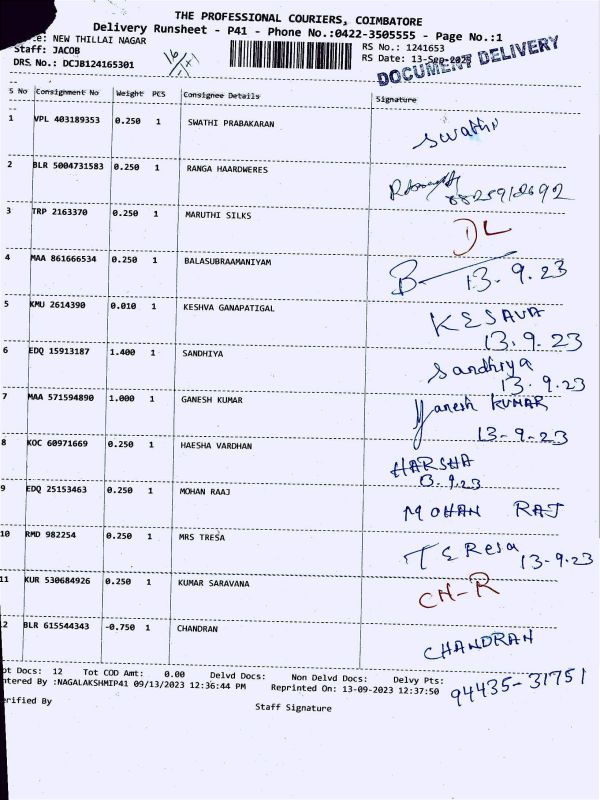 THE PROFESSIONAL COURIERS, COIMBATORE
Delivery Runsheet - P41 - Phone No.:0422-3505555 - Page No.:1
te: NEW THILLAI NAGAR
RS No.: 1241653
Staff: JACOB
RS Date: 13-Sep-2023
DRS No.: DCJB124165301
DOCUMENT DELIVERY
S No Consignment No Weight PCS Consignee Details Signature
1 VPL 403189353 0.250 1 SWATHI PRABAKARAN Swathi
2 BLR 5004731583 0.250 1 RANGA HAARDWERES
3 TRP 2163370 0.250 1 MARUTHI SILKS DL
4 MAA 861666534 0.250 1 BALASUBRAAMANIYAM B 13.9.23
5 KMU 2614390 0.010 1 KESHVA GANAPATIGAL KESAVA
13.9.23
6 EDQ 15913187 1.400 1 SANDHIYA Sandhiya
13.9.23
7 MAA 571594890 1.000 1 GANESH KUMAR Ganesh KUMAR
13-9-23
8 KOC 60971669 0.250 1 HAESHA VARDHAN HARSHA
13.9.23
9 EDQ 25153463 0.250 1 MOHAN RAAJ MOHAN RAJ
10 RMD 982254 0.250 1 MRS TRESA TEResa 13-9-23
11 KUR 530684926 0.250 1 KUMAR SARAVANA CH-R
2 BLR 615544343 -0.750 1 CHANDRAN CHANDRAN
ot Docs: 12 Tot COD Amt: 0.00 Delvd Docs: Non Delvd Docs: Delvy Pts:
94435-31751
ntered By :NAGALAKSHMIP41 09/13/2023 12:36:44 PM Reprinted On: 13-09-2023 12:37:50
erified By
Staff Signature